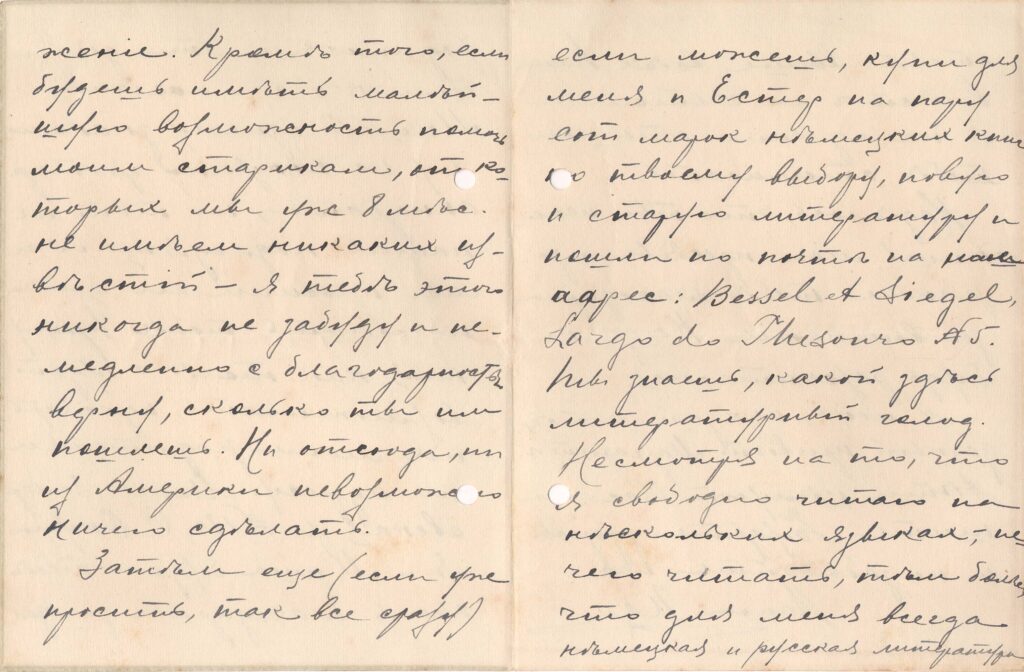 женiе. Кромѣ того, если
будешь имѣть малѣй-
шую возможность помочь
моим старикам, от ко-
торых мы уже 8 мѣс.
не имѣем никаких из-
вѣстiй – я тебѣ этого
никогда не забуду и не-
медленно с благодарностью
верну, сколько ты им
пошлешь. Ни отсюда, ни
из Америки невозможно
ничего сдѣлать.
Затѣм еще (если уже
просить, так все сразу)
если можешь, купи для
меня и Естер на пару
сот марок нѣмецких книг
по твоему выбору, новую
и старую литературу и
пошли по почтѣ на наш
адрес: Bessel et Siegel,
Largo do Thesouro № 5.
Ты знаешь, какой здѣсь
литературный голод.
Несмотря на то, что
я свободно читаю на
нѣскольких языках, – не-
чего читать, тѣм более
что для меня всегда
нѣмецкая и русская литература